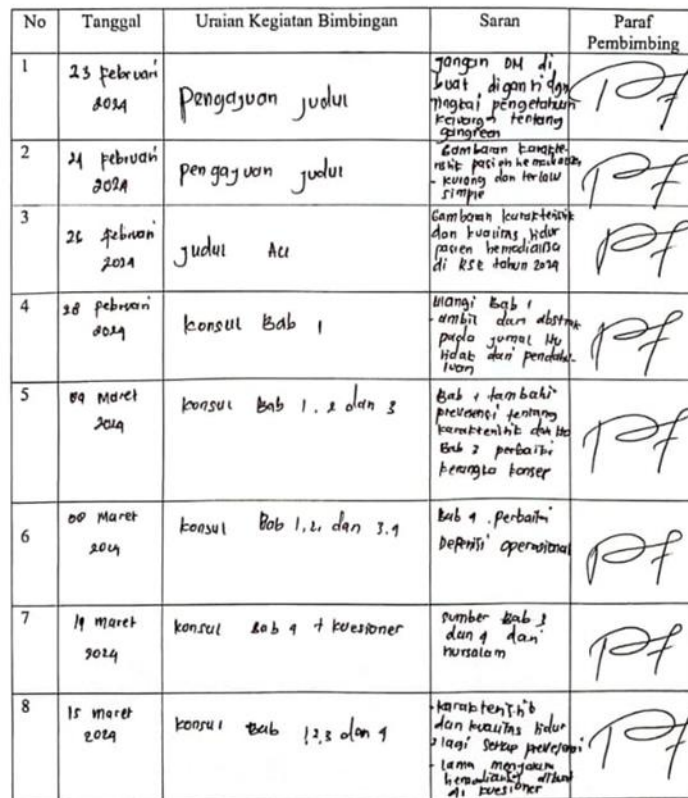 No Tanggal Uraian Kegiatan Bimbingan Saran Paraf
Pembimbing
1
23 februari
2024
Pengajuan judul
Jangan DM di
buat diganti dgn
tingkat pengetahuan
keluarga tentang
gangreen
2
24 februari
2024
pengajuan judul
Gambaran karakte-
ristik pasien hemodialisa
- kurang dan terlalu
simple
3
26 februari
2024
judul Acc
Gambaran karakteristik
dan kualitas hidup
pasien hemodialisa
di RSE tahun 2024
4
28 februari
2024
konsul Bab 1
ulangi Bab 1
- ambil dari abstrak
pada jurnal itu
tidak dari pendahu-
luan
5
Maret
2024
konsul Bab 1, 2 dan 3
Bab 1 tambahi
prevalensi tentang
karakteristik dan
Bab 3 perbaiki
kerangka konsep
6
Maret
2024
konsul Bab 1, 2, dan 3.4
Bab 4 . Perbaiki
Defenisi operasional
7
14 maret
2024
konsul Bab 4 + kuesioner
sumber Bab 3
dan 4 dari
nursalam
8
15 maret
2024
konsul Bab 1,2,3 dan 4
- karakteristik
dan kualitas hidup
lagi setiap prevelensi
- lama menjalani
hemodialisa dibuat
di kuesioner